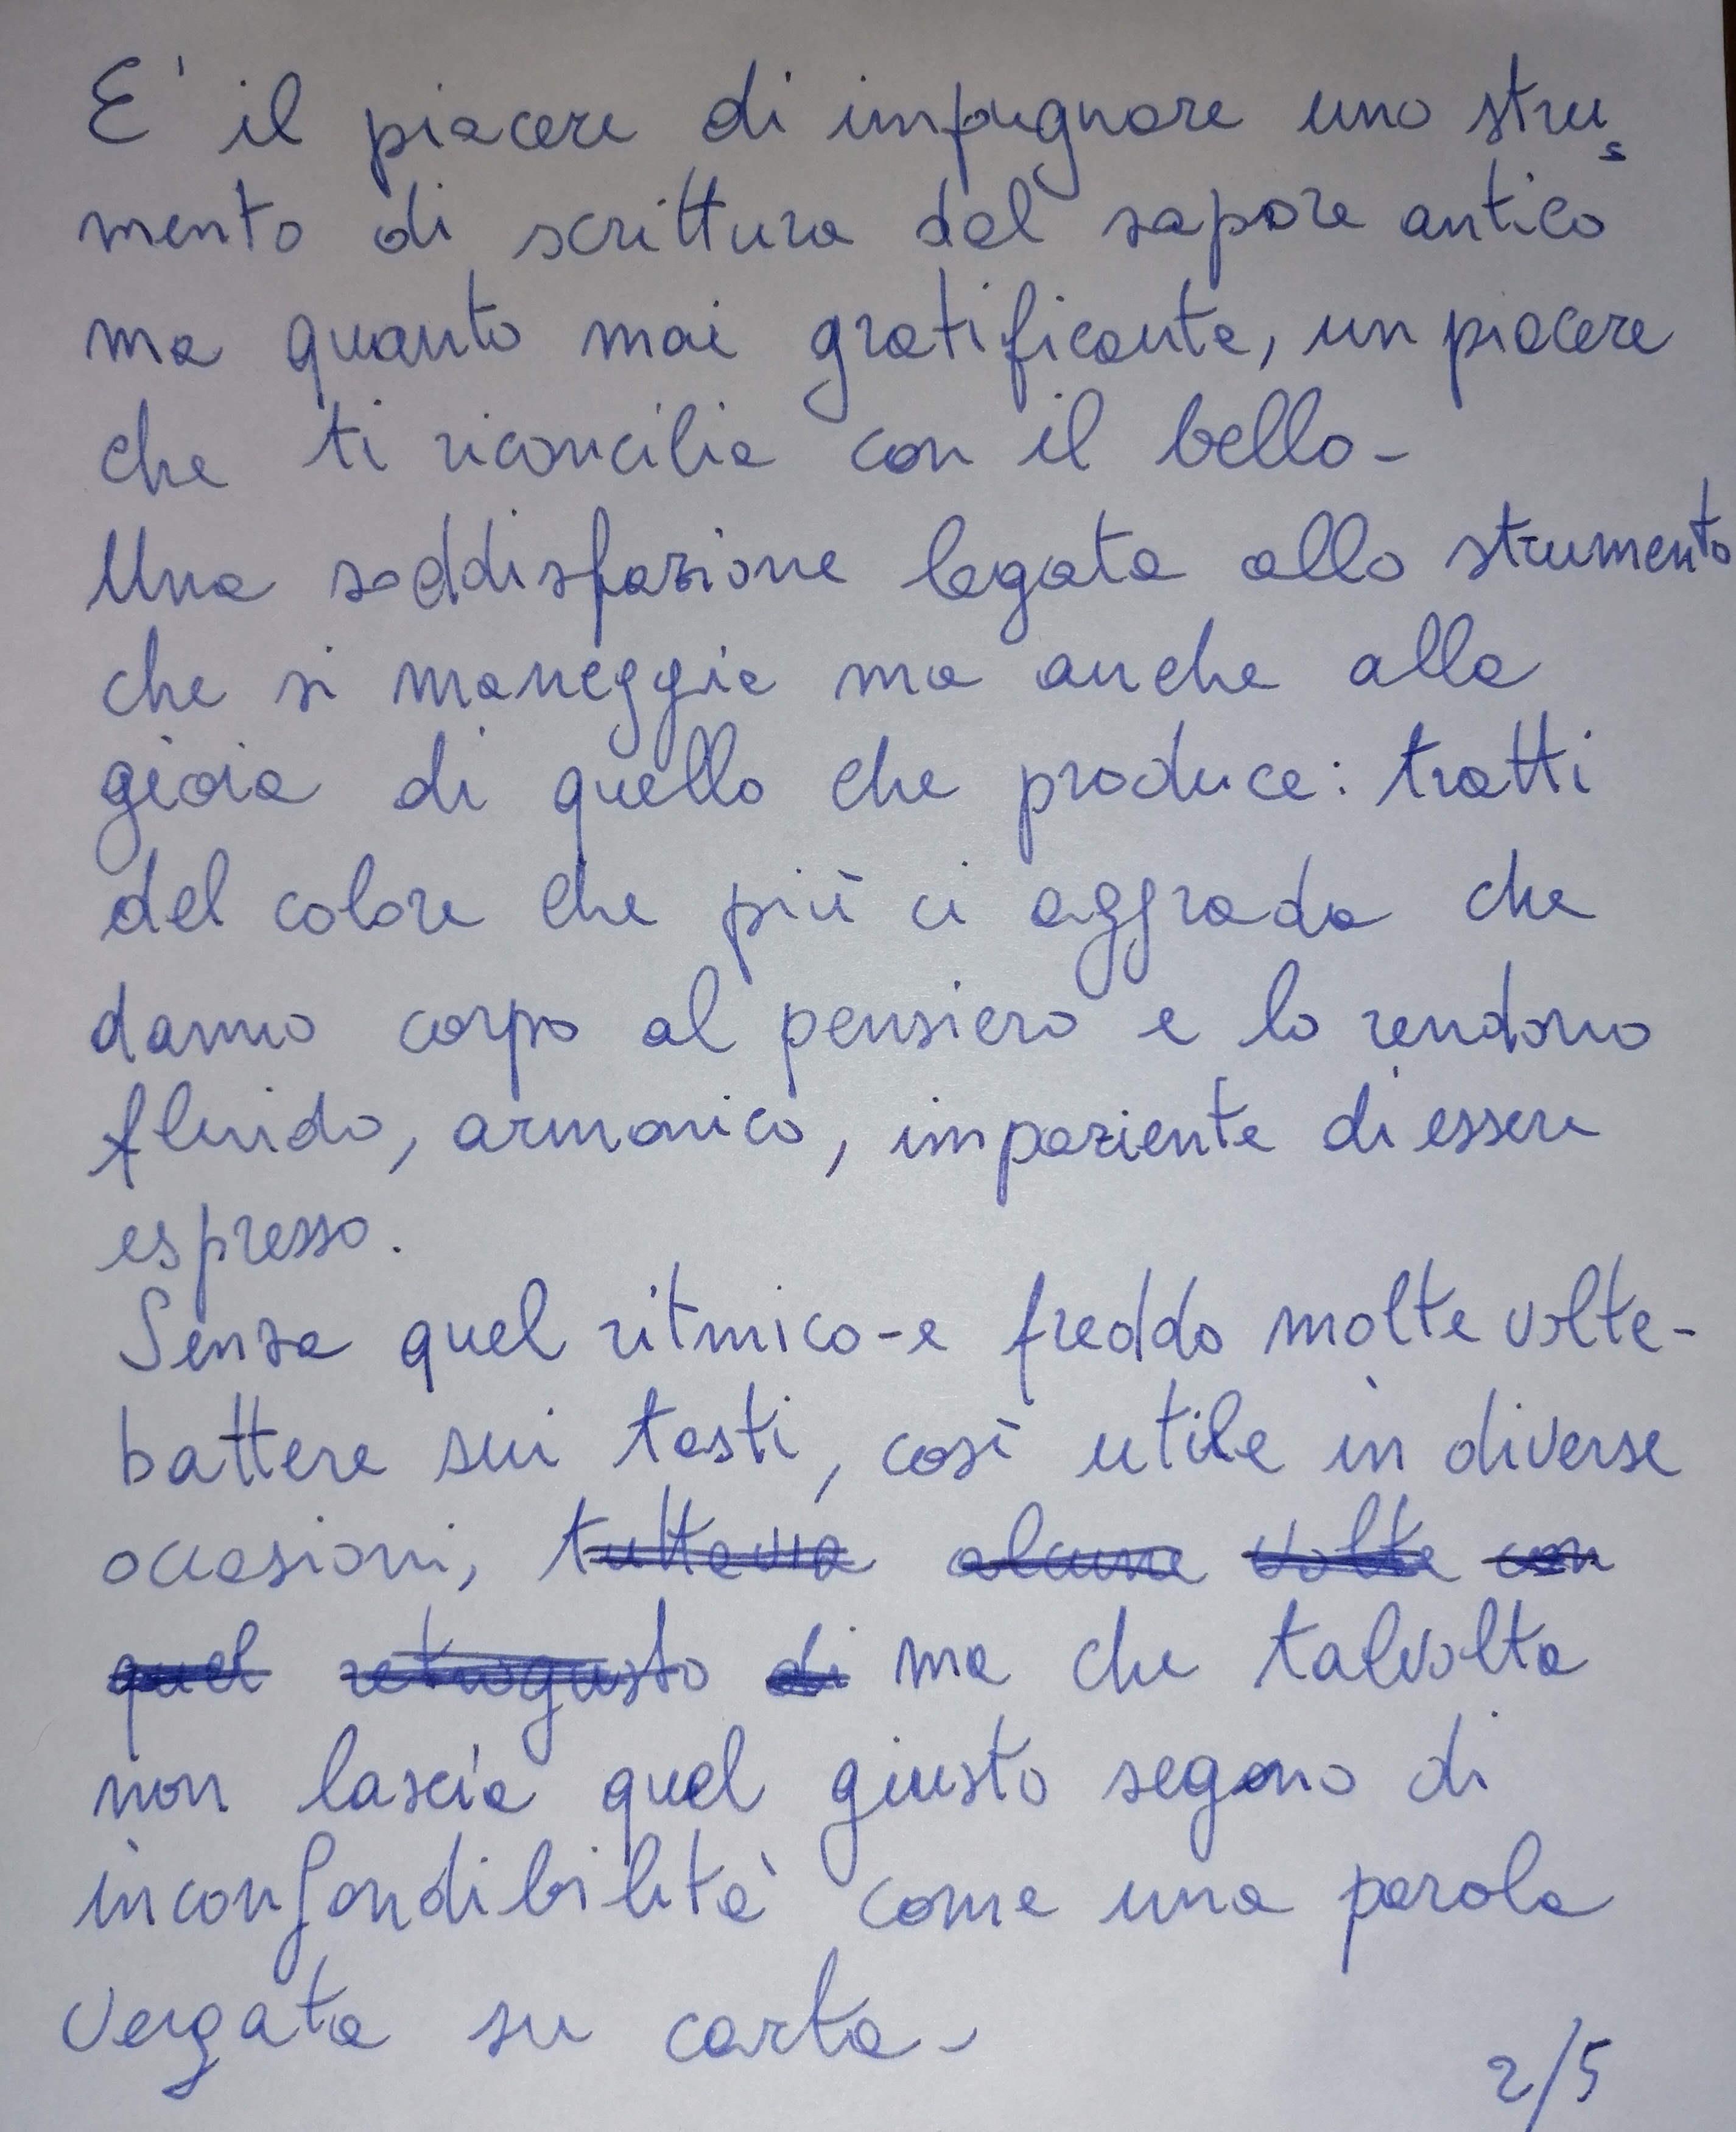 E' il piacere di impugnare uno stru
mento di scrittura dal sapore antico
ma quanto mai gratificante, un piacere
che ti riconcilia con il bello-
Una soddisfazione legata allo strumento
che si maneggia ma anche alla
gioia di quello che produce: tratti
del colore che più ci aggrada che
danno corpo al pensiero e lo rendono
fluido, armonico, impaziente di essere
espresso.
Senza quel ritmico-e freddo molte volte-
battere sui tasti, così utile in diverse
occasioni, tuttavia alcune volte con
quel retrogusto di ma che talvolta
non lascia quel giusto segno di
inconfondibilità come una parola
vergata su carta-
2/5